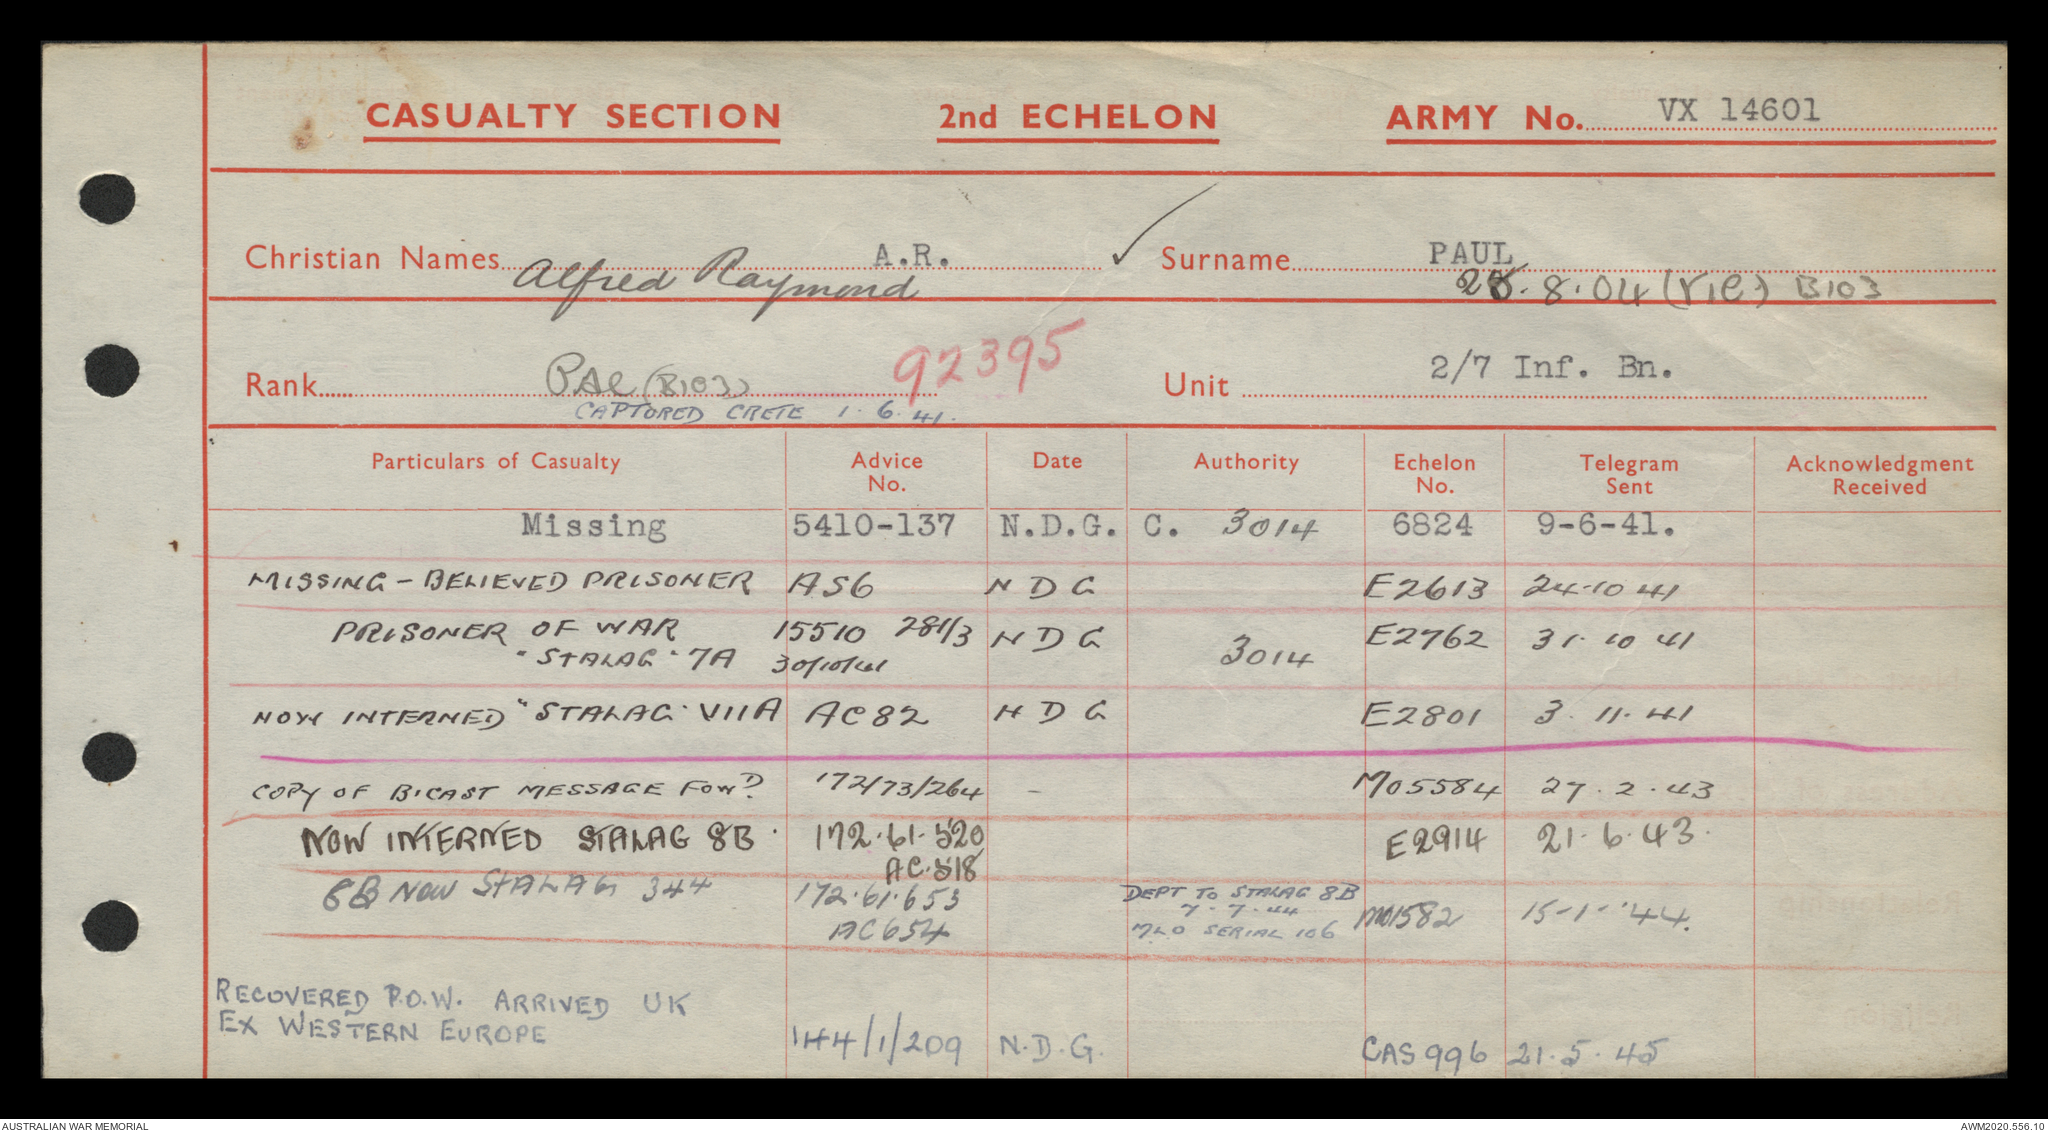 CASUALTY SECTION 2nd ECHELON ARMY No. VX 14601
Christian Names A.R. Surname PAUL
Alfred Raymond 28.8.04 (VIC) B103
Rank Pte (B103) 92395 Unit 2/7 Inf. Bn.
CAPTURED CRETE 1.6.41.
Particulars of Casualty Advice No. Date Authority Echelon No. Telegram Sent Acknowledgment Received
Missing 5410-137 N.D.G. C. 3014 6824 9-6-41.
MISSING - BELIEVED PRISONER AS6 N D G E2613 24.10 41
PRISONER OF WAR 15510 281/3 N D G E2762 31.10 41
"STALAG" 7A 30/10/41 3014
NOW INTERNED "STALAG" VIIA AC82 N D G E2801 3.11.41
COPY OF BICAST MESSAGE FOWD. 172/73/264 - MO5584 27.2.43
NOW INTERNED STALAG 8B. 172.61.520 E2914 21.6.43.
AC.518
8B NOW STALAG 344 172.61.653 DEPT TO STALAG 8B MO1582 15-1-'44.
7-7-44
AC654 MLO SERIAL 106
RECOVERED P.O.W. ARRIVED UK
EX WESTERN EUROPE 144/1/209 N.D.G. CAS996 21.5.45
AUSTRALIAN WAR MEMORIAL AWM2020.556.10